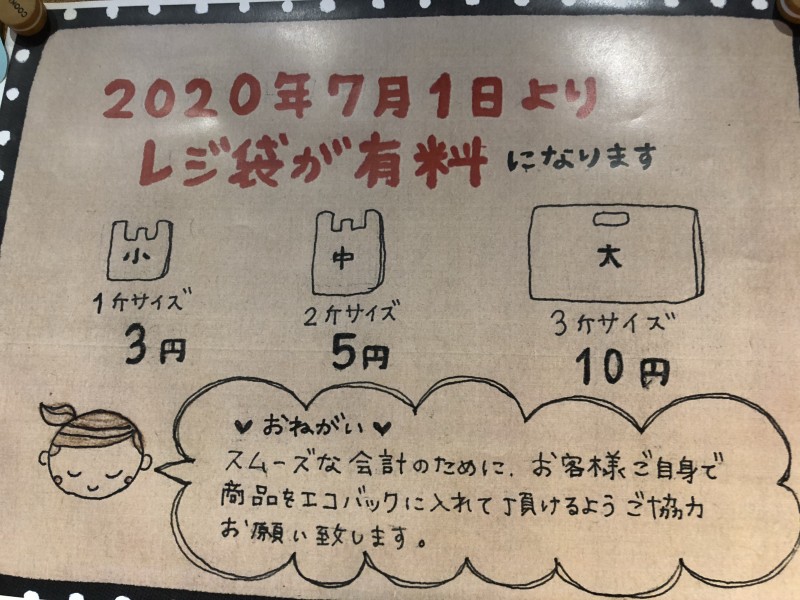 2020年7月1日より
レジ袋が有料になります
小
中
大
1斤サイズ
2斤サイズ
3斤サイズ
3円
5円
10円
♥おねがい♥
スムーズな会計のために、お客様ご自身で
商品をエコバックに入れて頂けるようご協力
お願い致します。